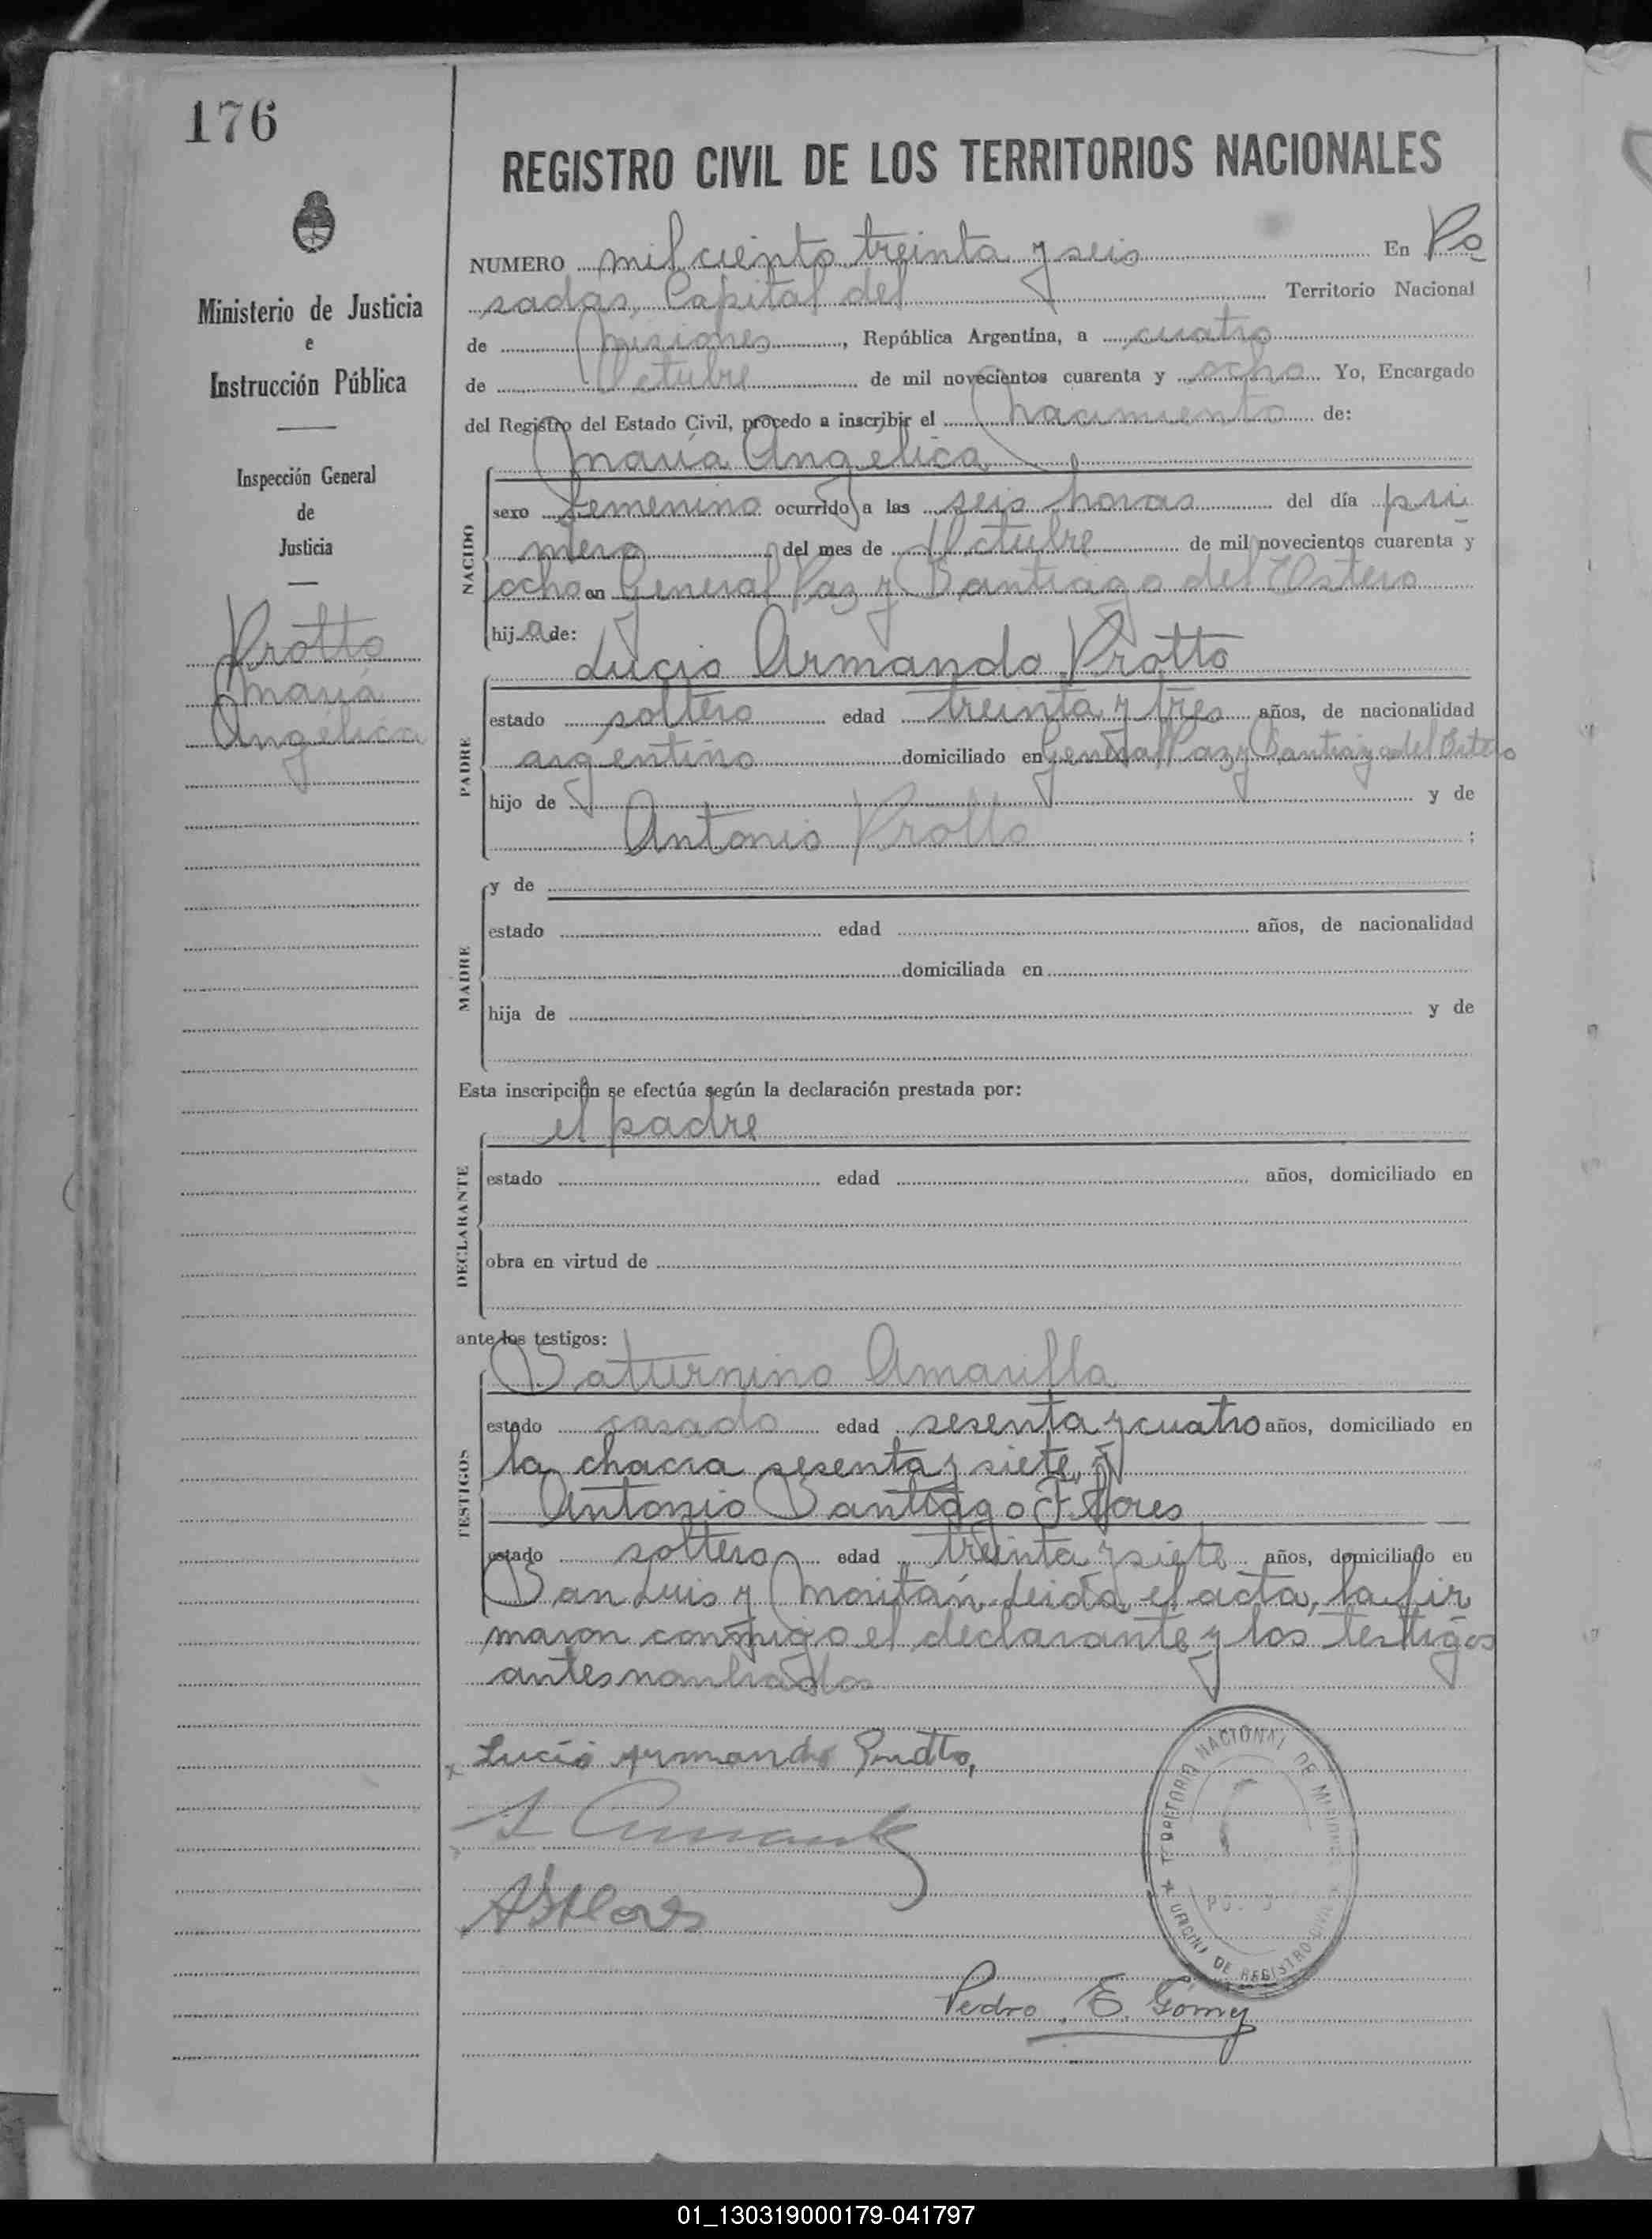 176
REGISTRO CIVIL DE LOS TERRITORIOS NACIONALES
Ministerio de Justicia
e
Instrucción Pública
Inspección General
de
Justicia
Protto
María
Angélica
NUMERO mil ciento treinta y seis En Po
sadas, Capital del Territorio Nacional
de Misiones, República Argentina, a cuatro
de Octubre de mil novecientos cuarenta y ocho Yo, Encargado
del Registro del Estado Civil, procedo a inscribir el nacimiento de:
María Angélica
NACIDO
sexo femenino ocurrido a las seis horas del día pri
mero del mes de Octubre de mil novecientos cuarenta y
ocho en General Paz y Santiago del Estero
hija de:
Lucio Armando Protto
PADRE
estado soltero edad treinta y tres años, de nacionalidad
argentino domiciliado en General Paz y Santiago del Estero
hijo de y de
Antonio Protto ;
MADRE
y de
estado edad años, de nacionalidad
domiciliada en
hija de y de
Esta inscripción se efectúa según la declaración prestada por:
el padre
DECLARANTE
estado edad años, domiciliado en
obra en virtud de
ante los testigos:
Saturnino Amarilla
TESTIGOS
estado casado edad sesenta y cuatro años, domiciliado en
la chacra sesenta y siete, y
Antonio Santiago F. Flores
estado soltero edad treinta y siete años, domiciliado en
San Luis y Moritán. Leída el acta, la fir
maron conmigo el declarante y los testigos
antes nombrados
Lucio Armando Protto,
ASFlores
TERRITORIO NACIONAL DE MISIONES
OFICINA DE REGISTRO CIVIL
Pedro E. Gomez
01_130319000179-041797